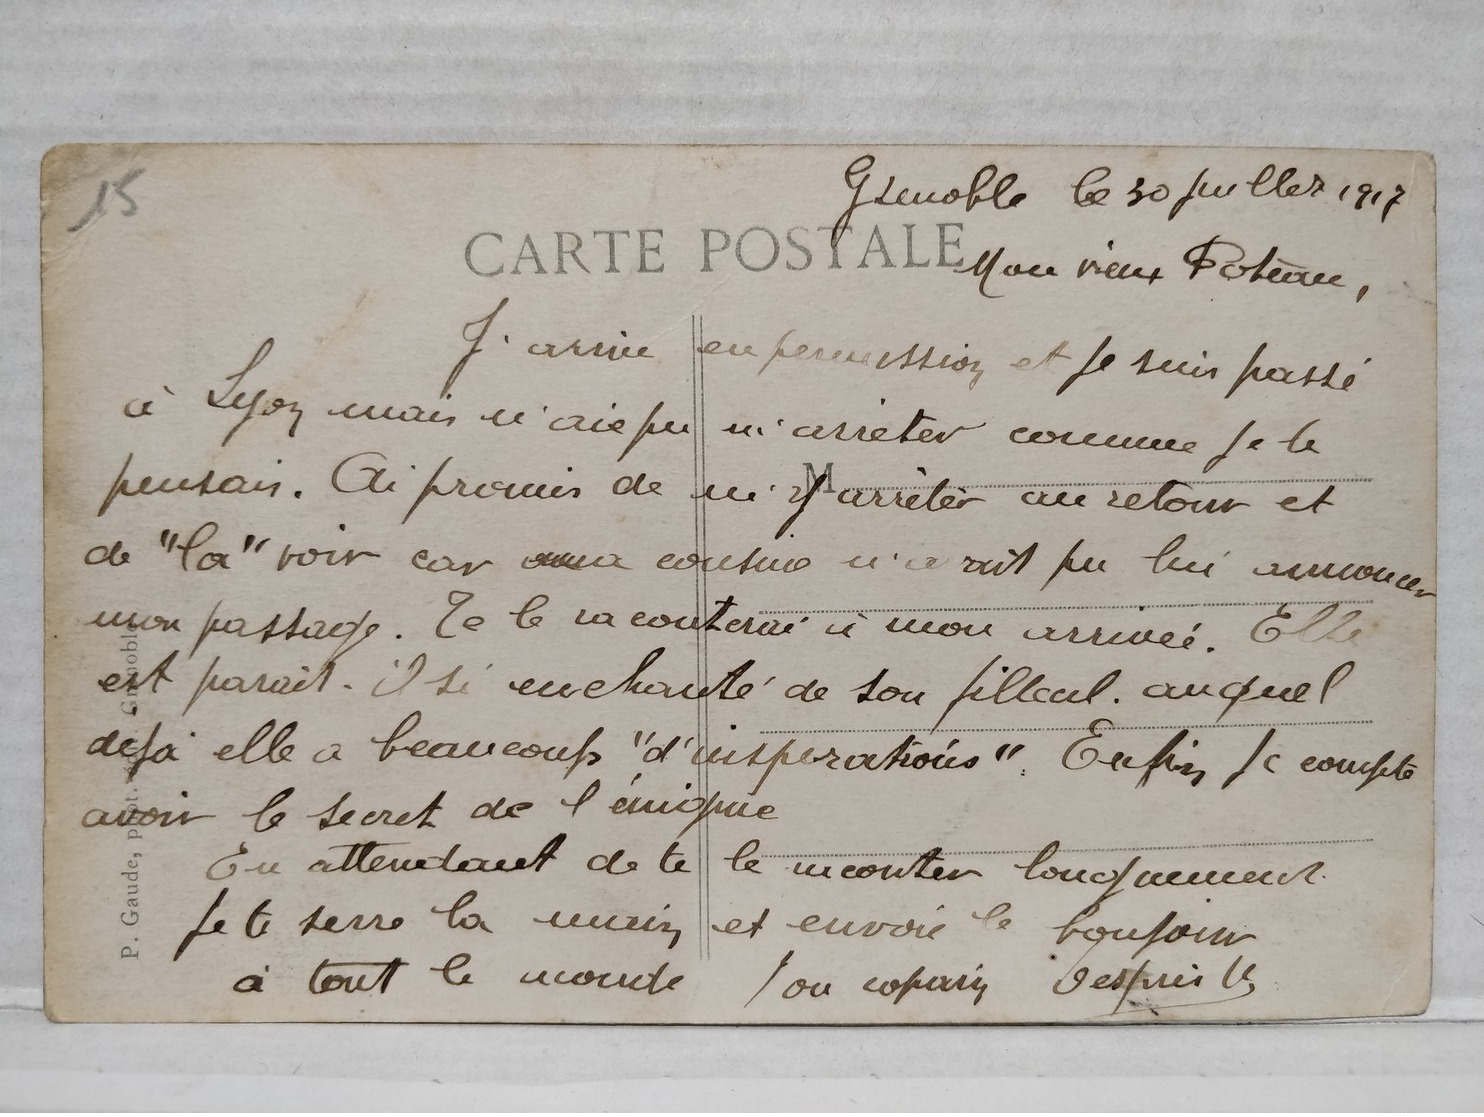 15
Grenoble le 30 juillet 1917
CARTE POSTALE
Mon vieux Poteau,
J'arrive en permission et je suis passé
à Lyon mais n'aie pu m'arrêter comme je le
pensais. Ai promis de m'y arrêter au retour et
M
de "la" voir car ma cousine n'avait pu lui annoncer
mon passage. Te le raconterai à mon arrivée. Elle
est parait-il si enchanté de son filleul. auquel
déjà elle a beaucoup "d'inspirations". Enfin je compte
avoir le secret de l'énigme
En attendant de te le raconter longuement
je te serre la main et envoie le bonjour
à tout le monde Ton copain
P. Gaude, Grenoble